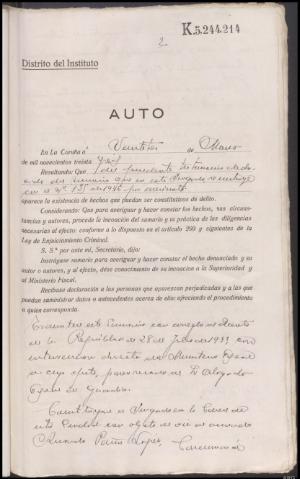 K.5.244.214
2
Distrito del Instituto
AUTO
En La Coruña a Veintitres de Marzo
de mil novecientos treinta y seis
Resultando: Que del precedente testimonio
aparece la existencia de hechos que pueden ser constitutivos de delito.
Considerando: Que para averiguar y hacer constar los hechos, sus circuns-
tancias y autores, procede la incoación del sumario y la práctica de las diligencias
necesarias al efecto; conforme a lo dispuesto en el artículo 299 y siguientes de la
Ley de Enjuiciamiento Criminal.
S. Sª por ante mi, Secretario, dijo:
Instrúyase sumario para averiguar y hacer constar el hecho denunciado y su
autor o autores, y al efecto, dése conocimiento de su incoación a la Superioridad y
al Ministerio Fiscal.
Recíbase declaración a las personas que aparezcan perjudicadas y a las que
puedan suministrar datos o antecedentes acerca de ello; ofreciendo el procedimiento
a quien corresponda.
este Sumario con arreglo al Decreto
de la República de 28 de Julio de 1933 con
intervencion directa del Ministerio Fiscal
a cuyo efecto, del Abogado
Fiscal de
Constitúyase el Juzgado en la Carcel de
esta Ciudad con objeto de oir al acusado